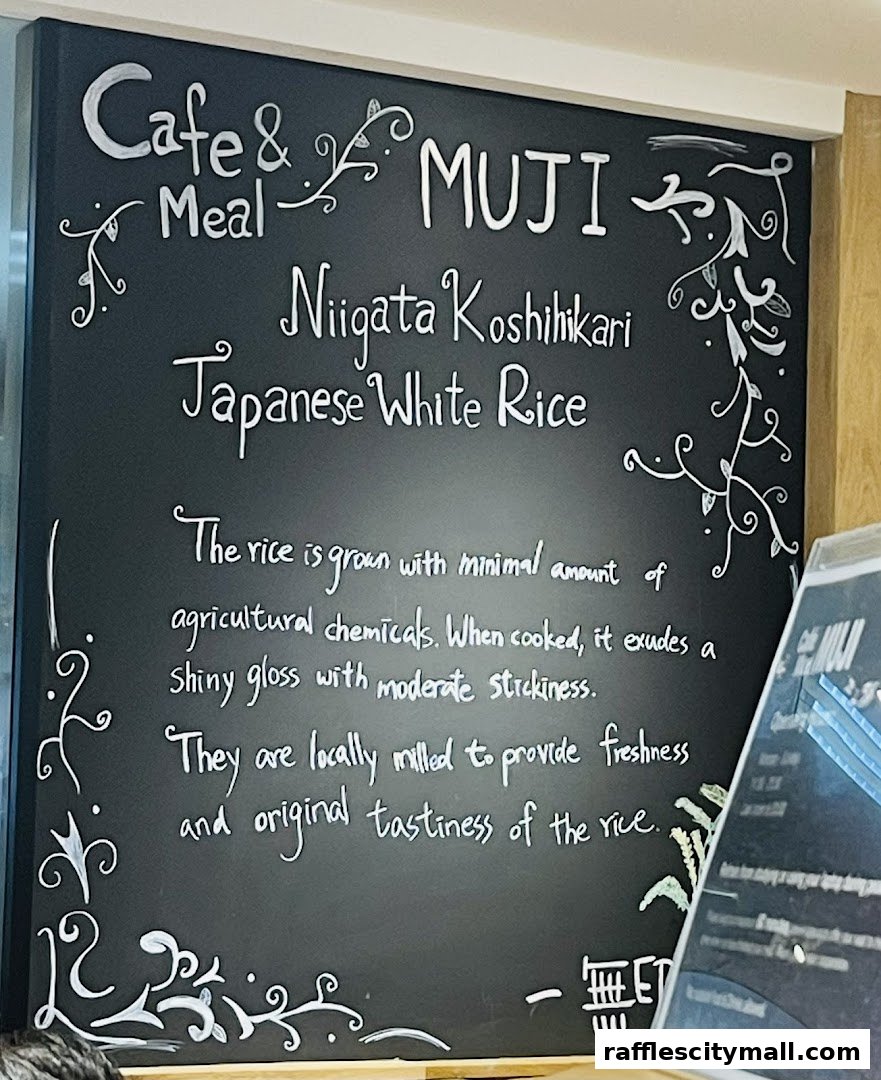 Cafe &
Meal MUJI
Niigata Koshihikari
Japanese White Rice
The rice is grown with minimal amount of
agricultural chemicals. When cooked, it exudes a
shiny gloss with moderate stickiness.
They are locally milled to provide freshness
and original tastiness of the rice.
— 無印
MUJI
rafflescitymall.com